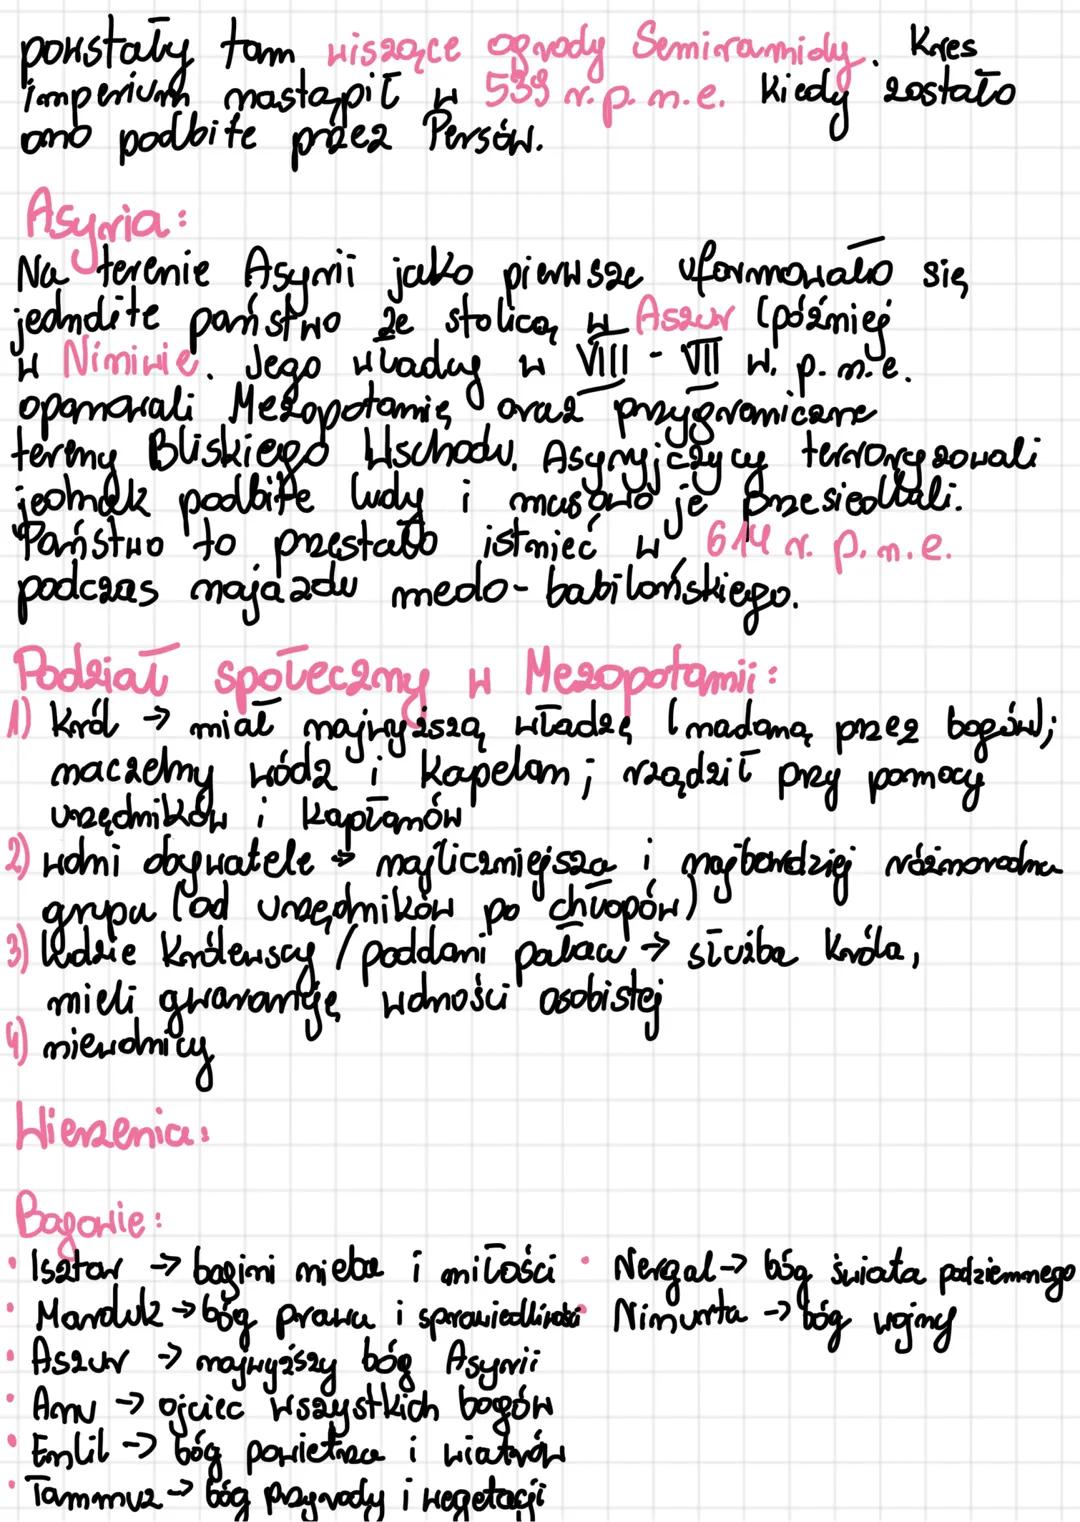 powstały tam wiszące ogrody Semiramidy. Kres
imperium nastąpił w 539 r. p. n. e. kiedy zostało
ono podbite przez Persów.
Asyria:
Na terenie Asyrii jako pierwsze uformowało się
jednolite państwo ze stolicą w Aszur (później
w Niniwie. Jego władcy w VIII - VII w. p. n. e.
opanowali Mezopotamię oraz przygraniczne
tereny Bliskiego Wschodu. Asyryjczycy terroryzowali
jednak podbite ludy i masowo je przesiedlali.
Państwo to przestało istnieć w 614 r. p. n. e.
podczas najazdu medo-babilońskiego.
Podział społeczny w Mezopotamii:
1) król → miał najwyższą władzę (nadaną przez bogów);
naczelny wódz i kapelan; rządził przy pomocy
urzędników i kapłanów
2) wolni obywatele → najliczniejsza i najbardziej różnorodna
grupa (od urzędników po chłopów)
3) ludzie królewscy / poddani pałacu → służba króla,
mieli gwarantję wolności osobistej
4) niewolnicy
Wierzenia:
Bogowie:
• Isztar → bogini nieba i miłości • Nergal → bóg świata podziemnego
• Marduk → bóg prawa i sprawiedliwości • Ninurta → bóg wojny
• Aszur → najwyższy bóg Asyrii
• Anu → ojciec wszystkich bogów
• Enlil → bóg powietrza i wiatrów
• Tammuz → bóg przyrody i wegetacji